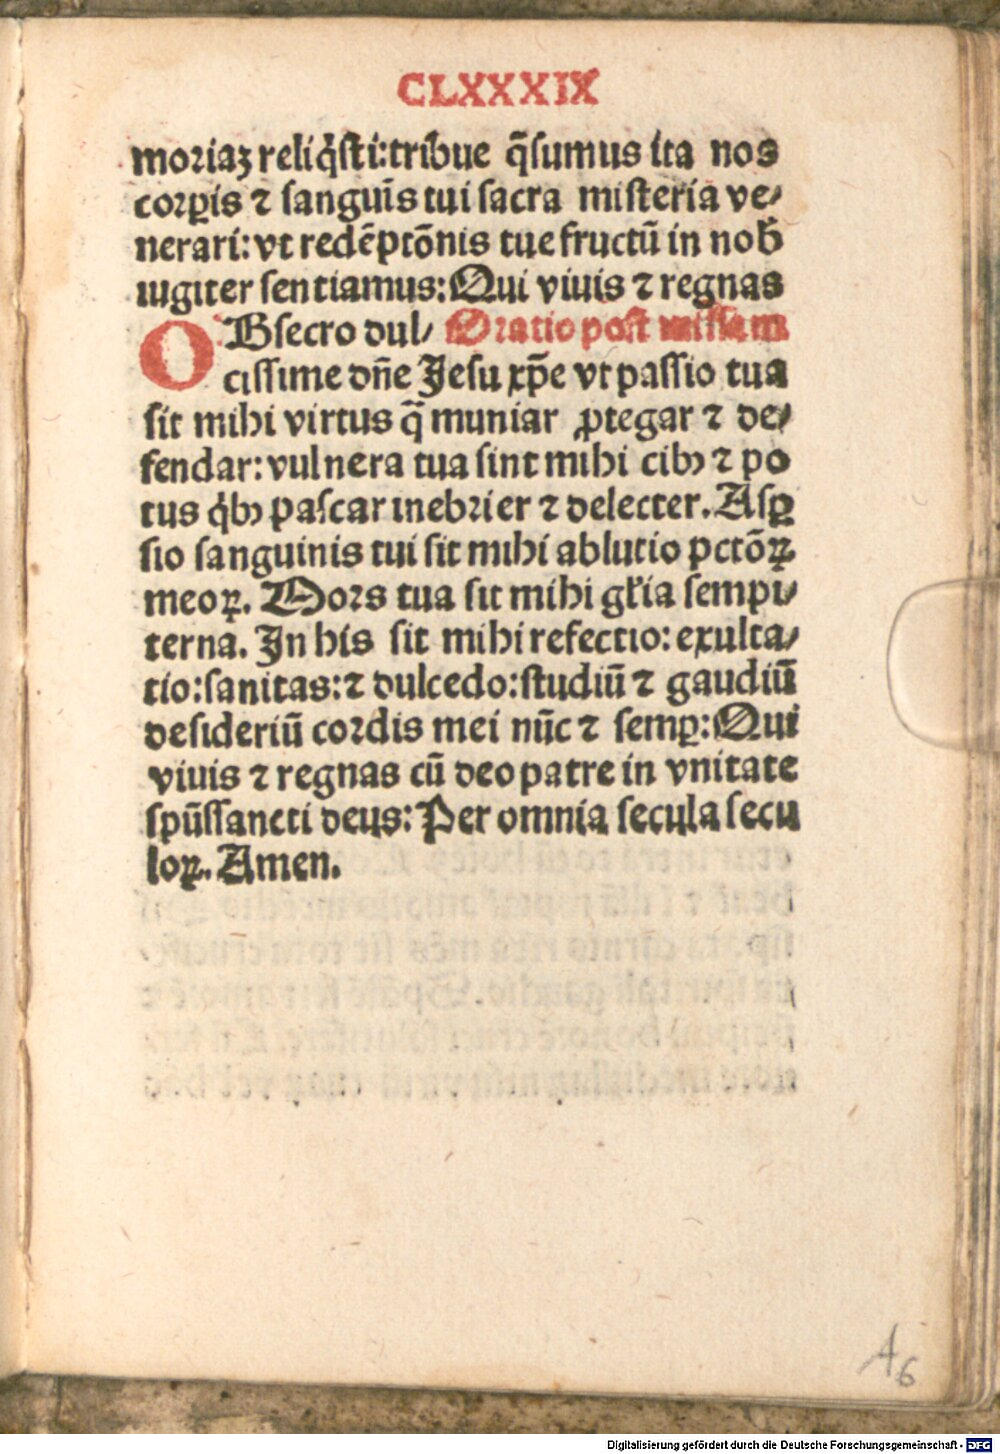 CLXXXIX
moriaʒ reliq̃sti:tribue q̃sumus ita nos
corꝑis ⁊ sanguīs tui sacra misteria ve⸗
nerari: vt redēptōnis tue fructū in nob̄
iugiter sentiamus: Qui viuis ⁊ regnas
OBsecro dul⸗ Oratio post missam
cissime dn̄e Jesu xp̄e vt passio tua
sit mihi virtus q̄ muniar ꝓtegar ⁊ de⸗
fendar: vulnera tua sint mihi cibꝰ ⁊ po
tus q̇bꝰ pascar inebrier ⁊ delecter. Asꝑ
sio sanguinis tui sit mihi ablutio pctōꝝ
meoꝝ. Mors tua sit mihi gl̄ia sempi⸗
terna. In his sit mihi refectio: exulta⸗
tio: sanitas: ⁊ dulcedo: studiū ⁊ gaudiū
desideriū cordis mei nūc ⁊ semꝑ: Qui
viuis ⁊ regnas cū deo patre in vnitate
spūssancti deus: Per omnia secula secu
loꝝ. Amen.
A6
Digitalisierung gefördert durch die Deutsche Forschungsgemeinschaft - DFG